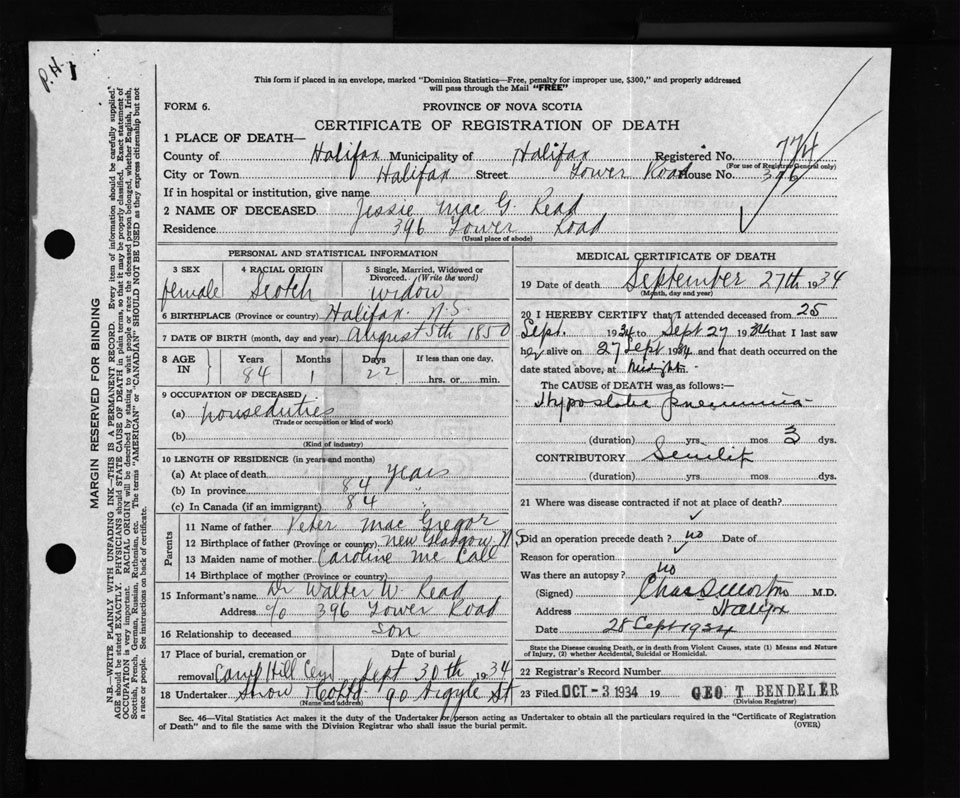 P.H. 1
This form if placed in an envelope, marked "Dominion Statistics—Free, penalty for improper use, $300," and properly addressed
will pass through the Mail "FREE"
FORM 6.
PROVINCE OF NOVA SCOTIA
CERTIFICATE OF REGISTRATION OF DEATH
1 PLACE OF DEATH—
County of Halifax Municipality of Halifax Registered No. 774
(For use of Registrar General only)
City or Town Halifax Street Tower Road House No. 396
If in hospital or institution, give name
2 NAME OF DECEASED Jessie Mac G. Read
Residence 396 Tower Road
(Usual place of abode)
PERSONAL AND STATISTICAL INFORMATION
3 SEX 4 RACIAL ORIGIN 5 Single, Married, Widowed or
Divorced.. (Write the word)
female Scotch widow
6 BIRTHPLACE (Province or country) Halifax N.S
7 DATE OF BIRTH (month, day and year) August 5th 1850
8 AGE IN Years Months Days If less than one day,
84 1 22 hrs. or min.
9 OCCUPATION OF DECEASED
(a) houseduties
(Trade or occupation or kind of work)
(b)
(Kind of industry)
10 LENGTH OF RESIDENCE (in years and months)
(a) At place of death 84 years
(b) In province 84 "
(c) In Canada (if an immigrant) 84 "
Parents
11 Name of father Peter Mac Gregor
12 Birthplace of father (Province or country) New Glasgow N.S
13 Maiden name of mother Caroline Mc Call
14 Birthplace of mother (Province or country)
15 Informant's name Dr Walter W. Read
Address c/o 396 Tower Road
16 Relationship to deceased son
17 Place of burial, cremation or Date of burial
removal Camp Hill Cem Sept 30th 1934
18 Undertaker Snow & Co Ltd. 90 Argyle St
(Name and address)
MEDICAL CERTIFICATE OF DEATH
19 Date of death September 27th 1934
(Month, day and year)
20 I HEREBY CERTIFY that I attended deceased from 25
Sept. 1934 to Sept 27 1934 that I last saw
her alive on 27 Sept 1934 and that death occurred on the
date stated above, at Midnight
The CAUSE OF DEATH was as follows:—
Hypostatic pneumonia
(duration) yrs. mos 3 dys.
CONTRIBUTORY Senility
(duration) yrs. mos. dys.
21 Where was disease contracted if not at place of death?
Did an operation precede death ? no Date of
Reason for operation
Was there an autopsy? no
(Signed) Chas S Morton M.D.
Address Halifax
Date 28 Sept 1934
State the Disease causing Death, or in death from Violent Causes, state (1) Means and Nature
of Injury, (2) whether Accidental, Suicidal or Homicidal.
22 Registrar's Record Number
23 Filed OCT -3 1934 19 GEO T. BENDELER
(Division Registrar)
Sec. 46—Vital Statistics Act makes it the duty of the Undertaker or person acting as Undertaker to obtain all the particulars required in the "Certificate of Registration
of Death" and to file the same with the Division Registrar who shall issue the burial permit.
(OVER)
MARGIN RESERVED FOR BINDING
N.B.—WRITE PLAINLY WITH UNFADING INK—THIS IS A PERMANENT RECORD. Every item of information should be carefully supplied.
AGE should be stated EXACTLY. PHYSICIANS should STATE CAUSE OF DEATH in plain terms, so that it may be properly classified. Exact statement of
OCCUPATION is very important. RACIAL ORIGIN will be described by stating to what people or race the deceased person belonged, whether English, Irish,
Scottish, French, German, Russian, Ruthenian, etc. The terms "AMERICAN" or "CANADIAN" SHOULD NOT BE USED as they express citizenship but not
a race or people. See instructions on back of certificate.